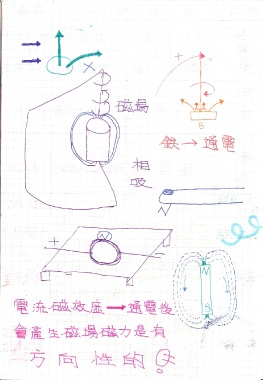 +
磁場
S
鉄→通電
相
吸
N
N
+
-
N
S
電流磁效应→通電後
會產生磁場磁力是有
方向性的